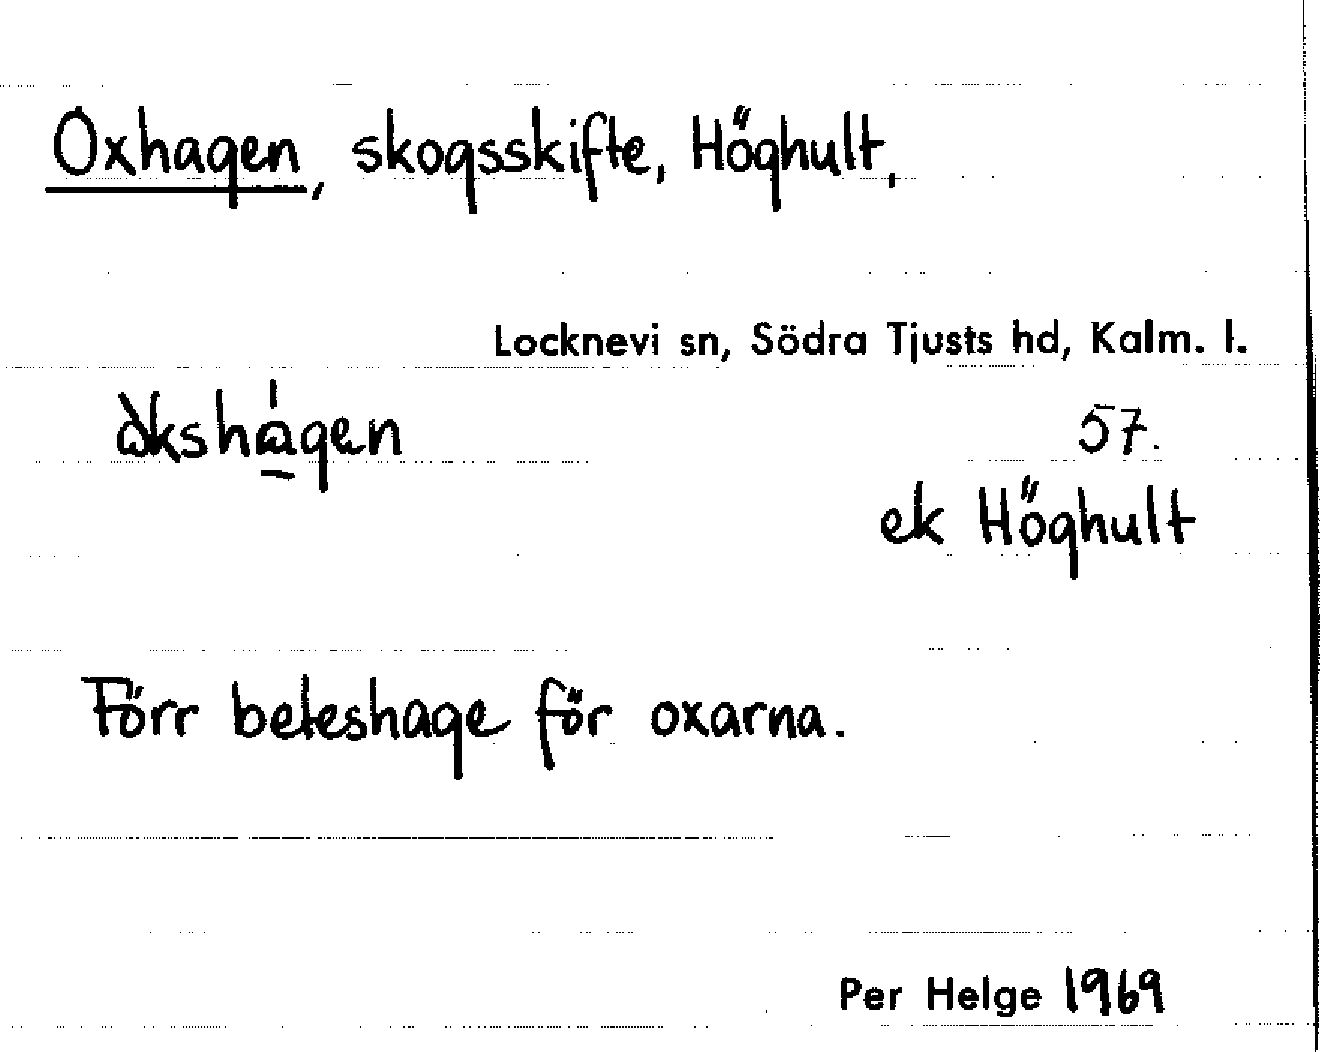 Oxhagen, skogsskifte, Höghult,
Locknevi sn, Södra Tjusts hd, Kalm. l.
57.
ek Höghult
Förr beteshage för oxarna.
Per Helge 1969